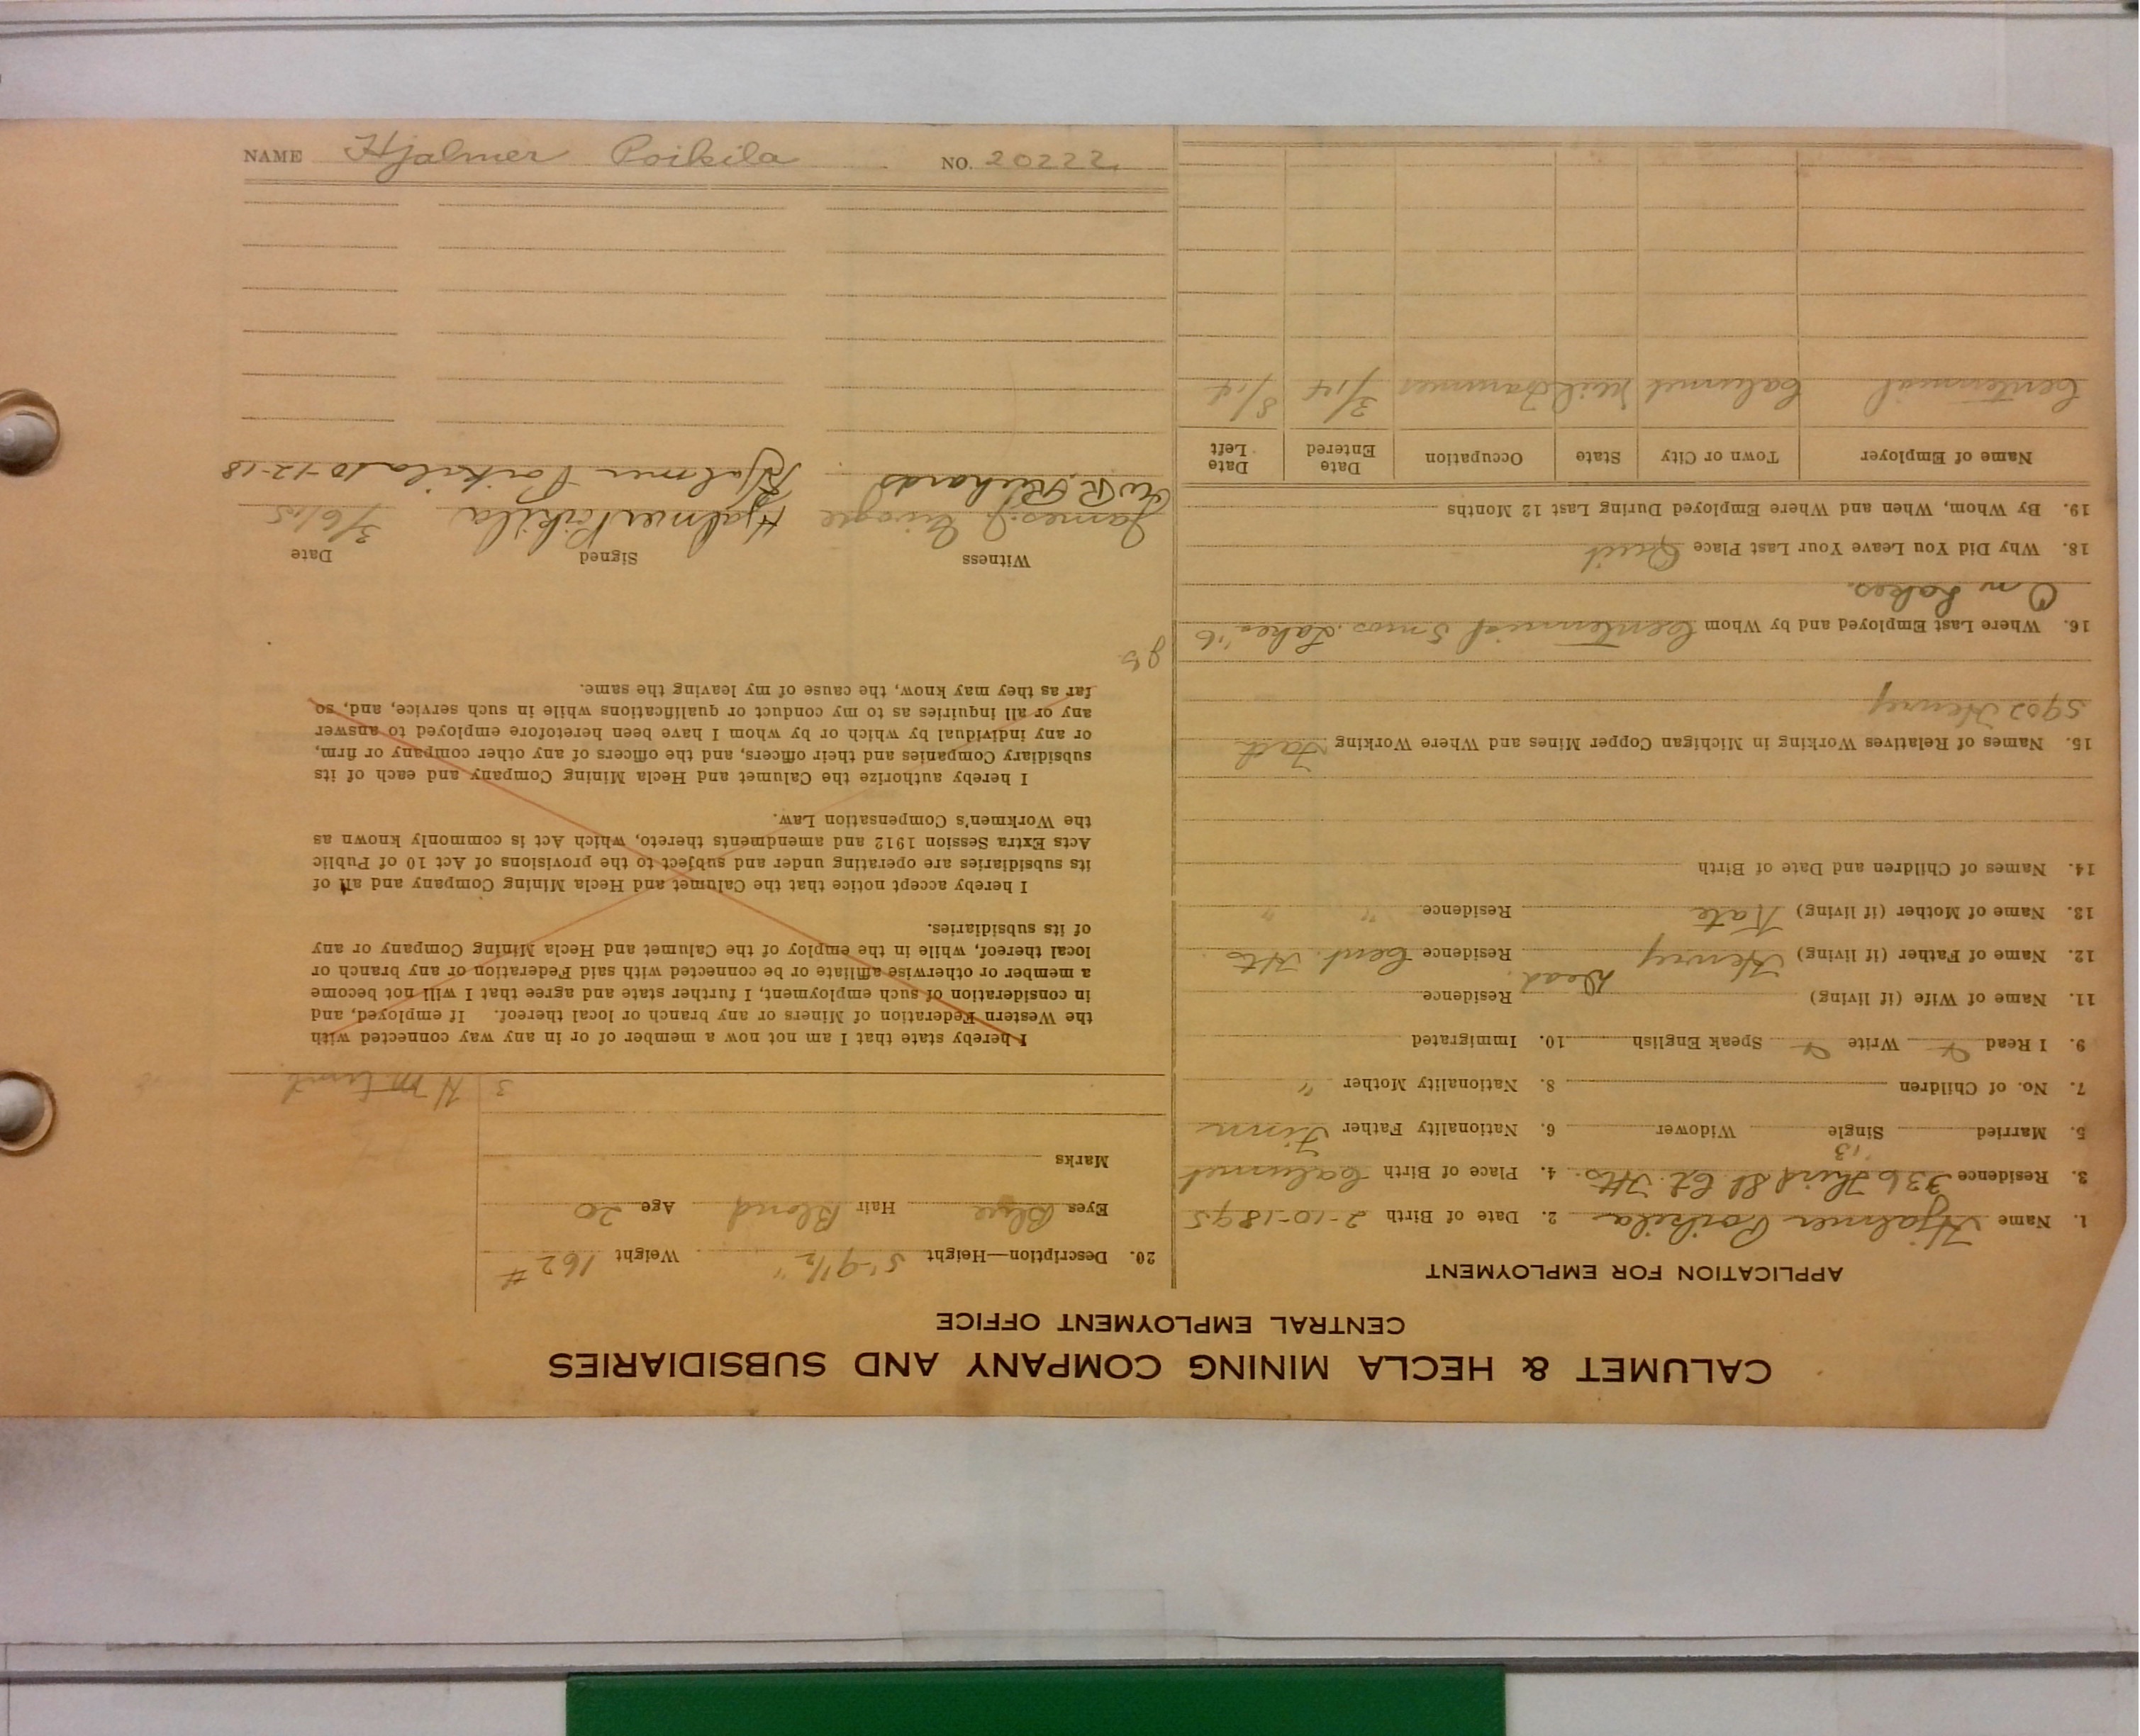 CALUMET & HECLA MINING COMPANY AND SUBSIDIARIES
CENTRAL EMPLOYMENT OFFICE
APPLICATION FOR EMPLOYMENT
1. Name Hjalmer Poikila 2. Date of Birth 2-10-1895
3. Residence 336 Third St. Cl. Hts. 4. Place of Birth Calumet
5. Married Single Widower 6. Nationality Father Finn
7. No. of Children 8. Nationality Mother "
9. I Read Write Speak English 10. Immigrated
11. Name of Wife (if living) Residence
12. Name of Father (if living) Henry Dead. Residence Cent. Hts
13. Name of Mother (if living) Kate Residence " "
14. Names of Children and Date of Birth
15. Names of Relatives Working in Michigan Copper Mines and Where Working Fad
5902 Henry
16. Where Last Employed and by Whom Centennial 5 mos. Lakes '15
On Lakes.
18. Why Did You Leave Your Last Place Quit
19. By Whom, When and Where Employed During Last 12 Months
Name of Employer Town or City State Occupation Date Entered Date Left
Centennial Calumet Mich Trammer 3/14 8/14
20. Description—Height 5'-9½" Weight 162 #
Eyes Blue Hair Blond Age 20
Marks
3
I hereby state that I am not now a member of or in any way connected with
the Western Federation of Miners or any branch or local thereof. If employed, and
in consideration of such employment, I further state and agree that I will not become
a member or otherwise affiliate or be connected with said Federation or any branch or
local thereof, while in the employ of the Calumet and Hecla Mining Company or any
of its subsidiaries.
I hereby accept notice that the Calumet and Hecla Mining Company and all of
its subsidiaries are operating under and subject to the provisions of Act 10 of Public
Acts Extra Session 1912 and amendments thereto, which Act is commonly known as
the Workmen's Compensation Law.
I hereby authorize the Calumet and Hecla Mining Company and each of its
subsidiary Companies and their officers, and the officers of any other company or firm,
or any individual by which or by whom I have been heretofore employed to answer
any or all inquiries as to my conduct or qualifications while in such service, and, so
far as they may know, the cause of my leaving the same.
Witness Signed Date
James J. Hjalmer Poikila 3/6/15
W R Richards Hjalmer Poikila 10-12-18
NAME Hjalmer Poikila NO. 20222